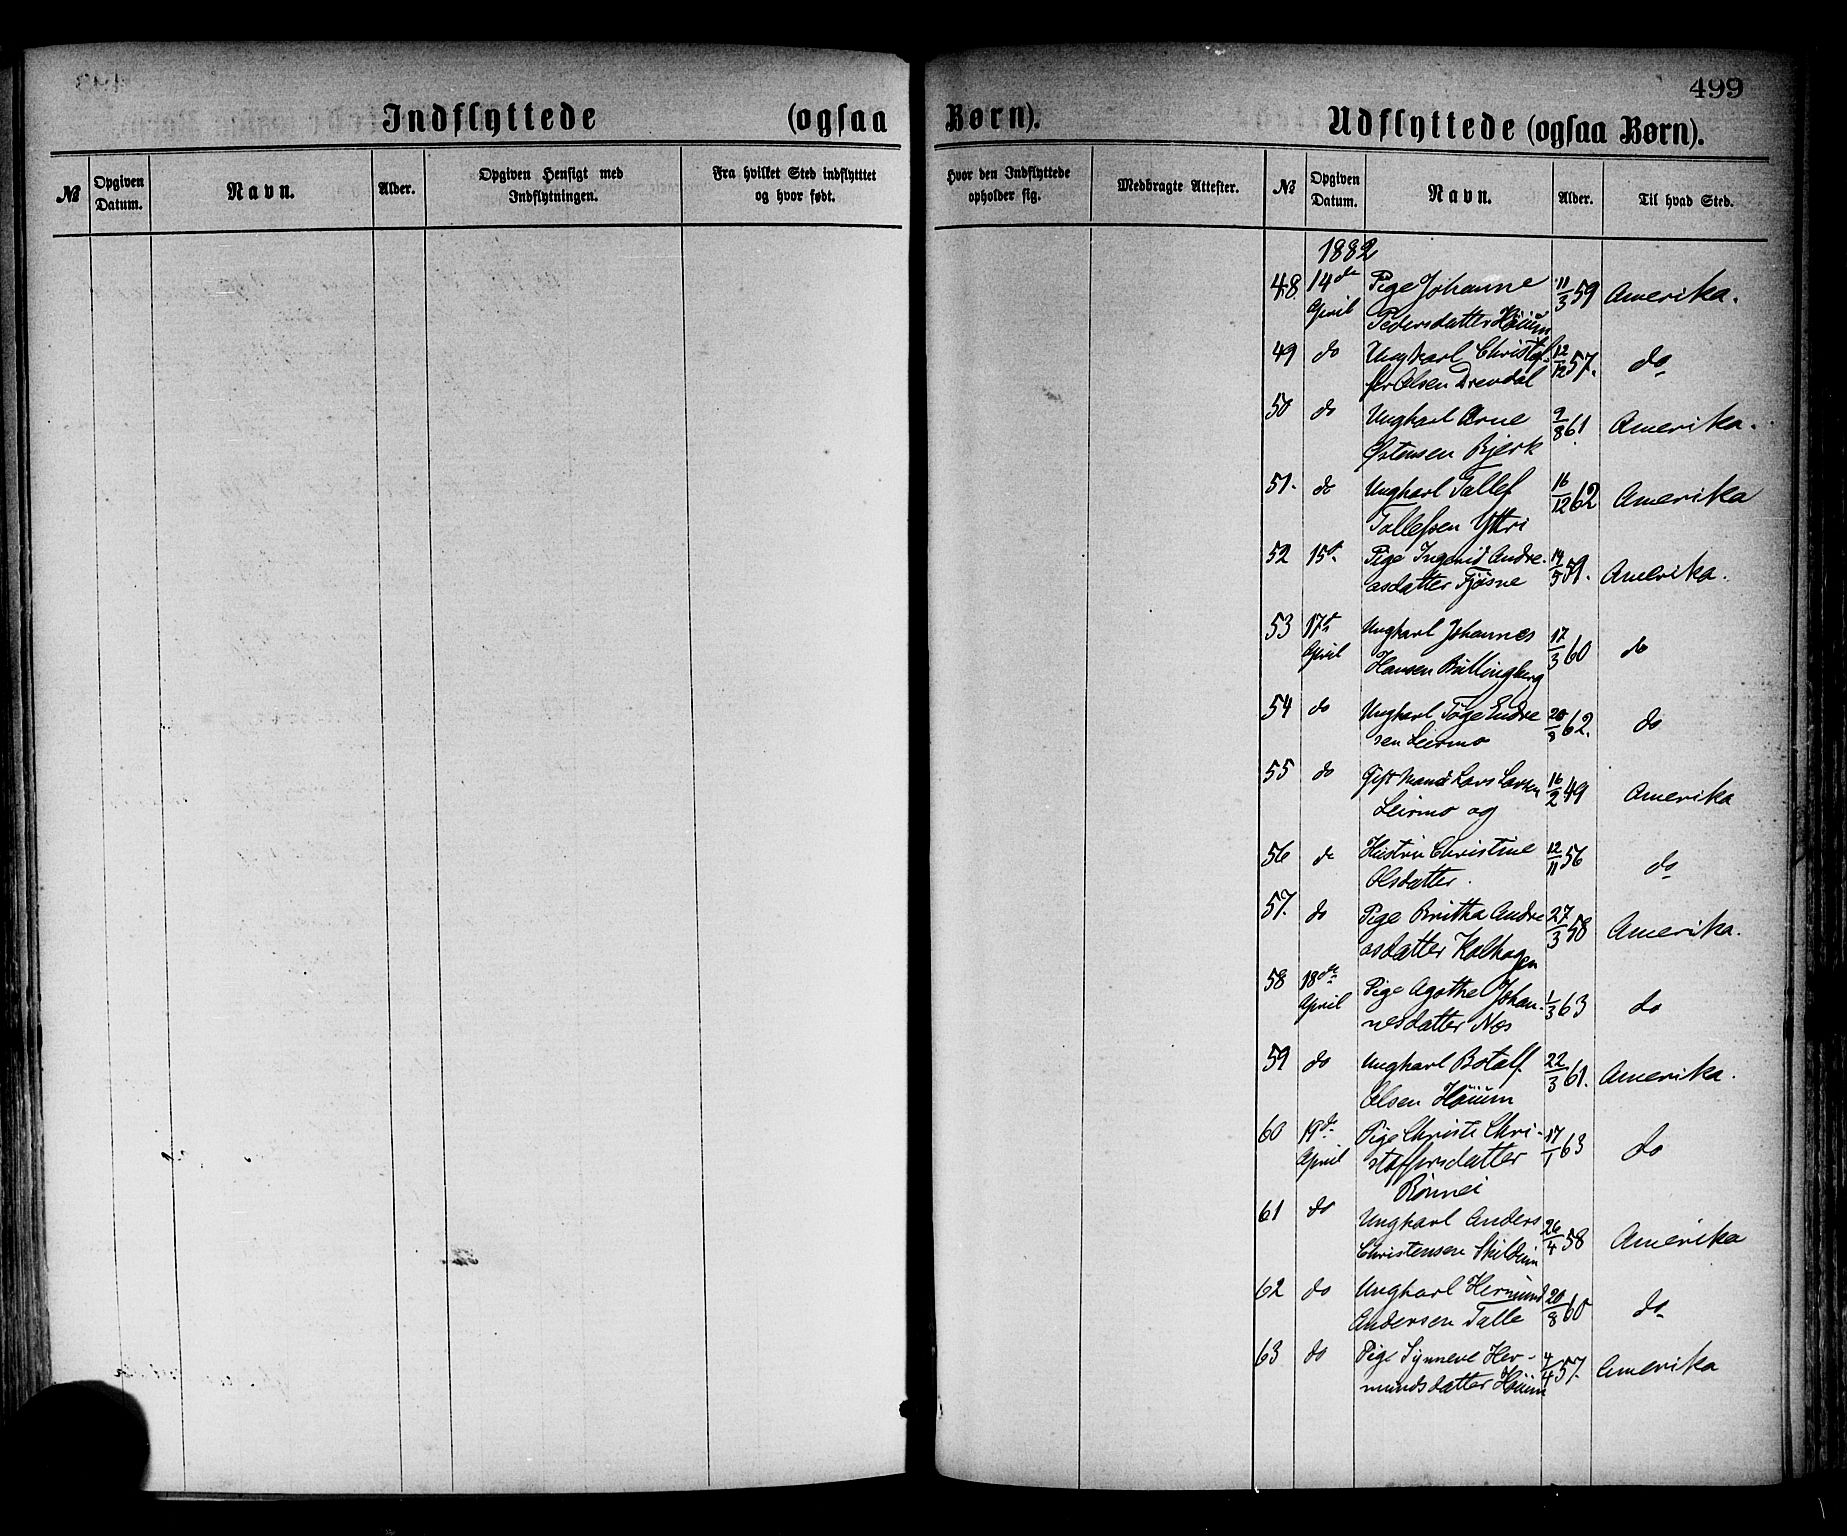 499
Indflyttede (ogsaa Børn).
Udflyttede (ogsaa Børn).
№ Opgiven Datum. Navn. Alder. Opgiven Hensigt med Indflytningen. Fra hvilket Sted indflyttet og hvor født. Hvor den Indflyttede opholder sig. Medbragte Attester. № Opgiven Datum. Navn. Alder. Til hvad Sted.
1882
48 14de Pige Johanne 11/3 59 Amerika.
April Pedersdatter Höium
49 do Ungkarl Christof- 12/12 57. do
fer Olsen Drevdal
50 do Ungkarl Arne 9/8 61 Amerika.
Østensen Bjerk
51. do Ungkarl Tallef 16/12 62 Amerika
Tallefsen Yttri
52 15d. Pige Ingerid Andre- 14/5 59. Amerika.
asdatter Fjösne
53 17de Ungkarl Johannes 17/3 60 do
April Hansen Büllingberg
54 do Ungkarl Töge Endre 62. do
sen Leirmo
55 do Gift Mand Lars Larsen 16/2 49 Amerika
Leirmo og
56 do Hustru Christine 12/11 56 do
Olsdatter.
57. do Pige Britha Andre 27/3 58 Amerika.
asdatter Kalhagen
58 18de Pige Agathe Johan- 1/3 63 do
April nesdatter Næs
59 do Ungkarl Botolf 22/3 61. Amerika.
Olsen Höium
60 19de Pige Christi Chri- 17/1 63 do
April stoffersdatter
Rönnei
61 do Ungkarl Anders 26/4 58 Amerika
Christensen Skildüm
62 do Ungkarl Hermund 20/8 60 do
Andersen Talle
63 do Pige Synneve Her- 4/4 57. Amerika
mundsdatter Höium